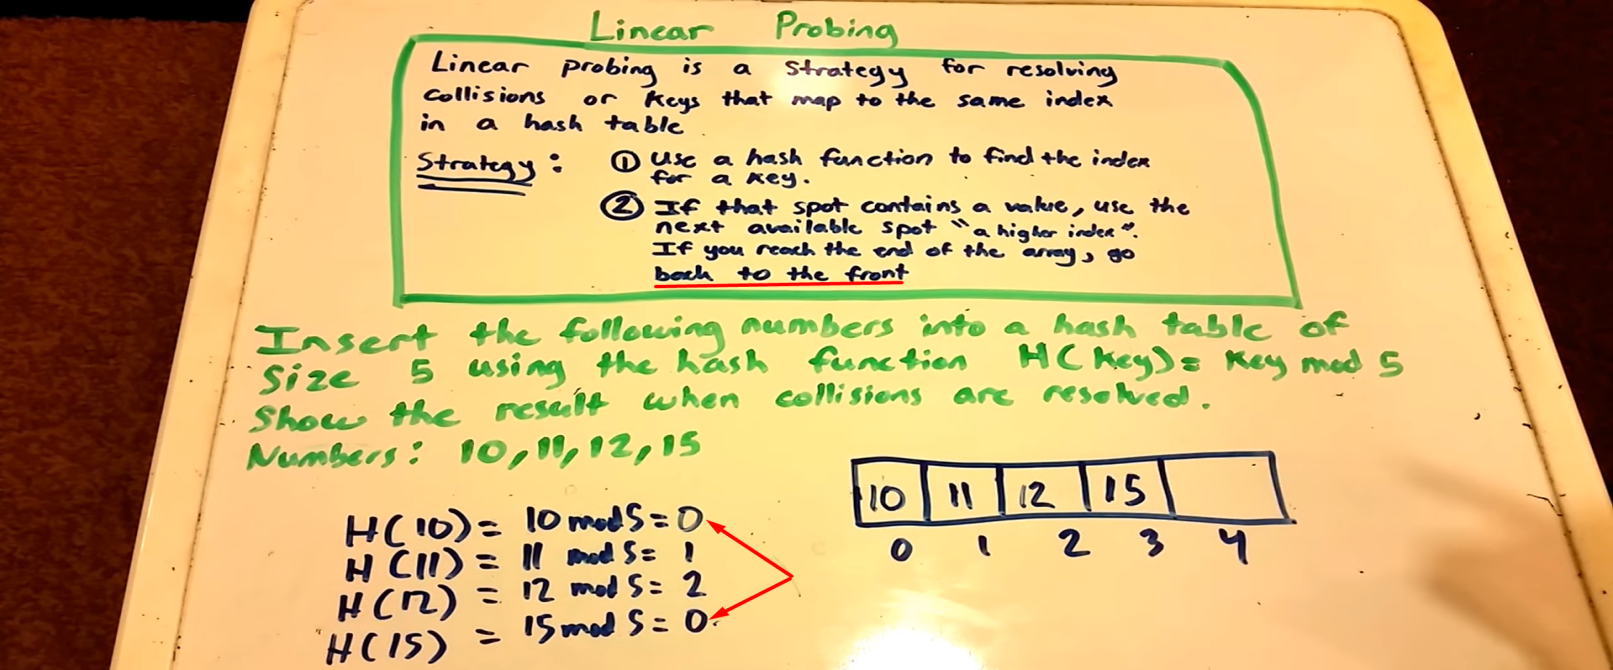 Linear Probing
Linear probing is a strategy for resolving
collisions or keys that map to the same index
in a hash table
Strategy: ① Use a hash function to find the index
for a key.
② If that spot contains a value, use the
next available spot "a higher index".
If you reach the end of the array, go
back to the front
Insert the following numbers into a hash table of
Size 5 using the hash function H(Key)= Key mod 5
Show the result when collisions are resolved.
Numbers: 10, 11, 12, 15
10 11 12 15
0 1 2 3 4
H(10) = 10 mod 5 = 0
H(11) = 11 mod 5 = 1
H(12) = 12 mod 5 = 2
H(15) = 15 mod 5 = 0